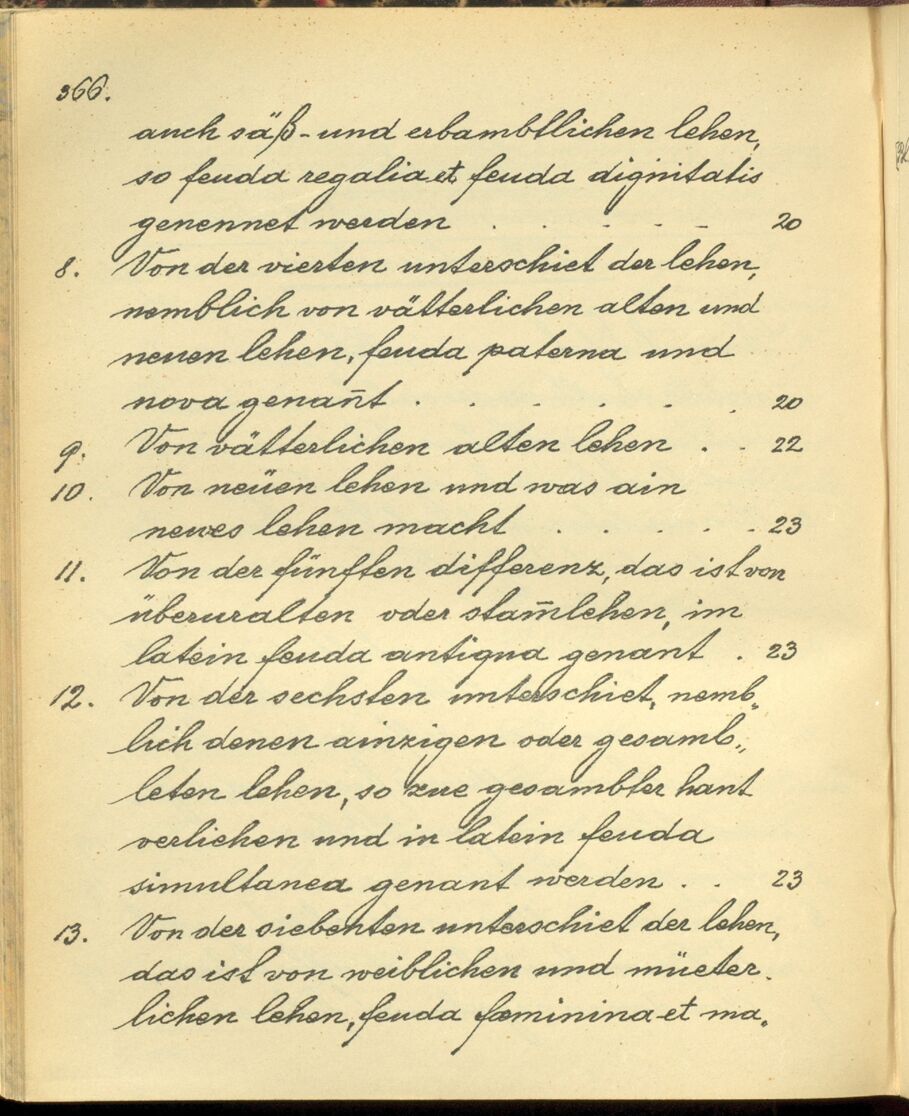 366.
auch säß- und erbambtlichen lehen,
so feuda regalia et feuda dignitatis
genennet werden . . . . . 20
8. Von der vierten unterschiet der lehen,
nemblich von vätterlichen alten und
neuen lehen, feuda paterna und
nova genan̄t . . . . . . 20
9. Von vätterlichen alten lehen . . 22
10. Von neüen lehen und was ain
newes lehen macht . . . . . 23
11. Von der fünften differenz, das ist von
überuralten oder stam̄lehen, im
latein feuda antiqua genant . 23
12. Von der sechsten unterschiet, nemb„
lich denen ainzigen oder gesamb„
leten lehen, so zue gesambter hant
verlichen und in latein feuda
simultanea genant werden . . 23
13. Von der siebenten unterschiet der lehen,
das ist von weiblichen und müeter-
lichen lehen, feuda fœminina et ma„